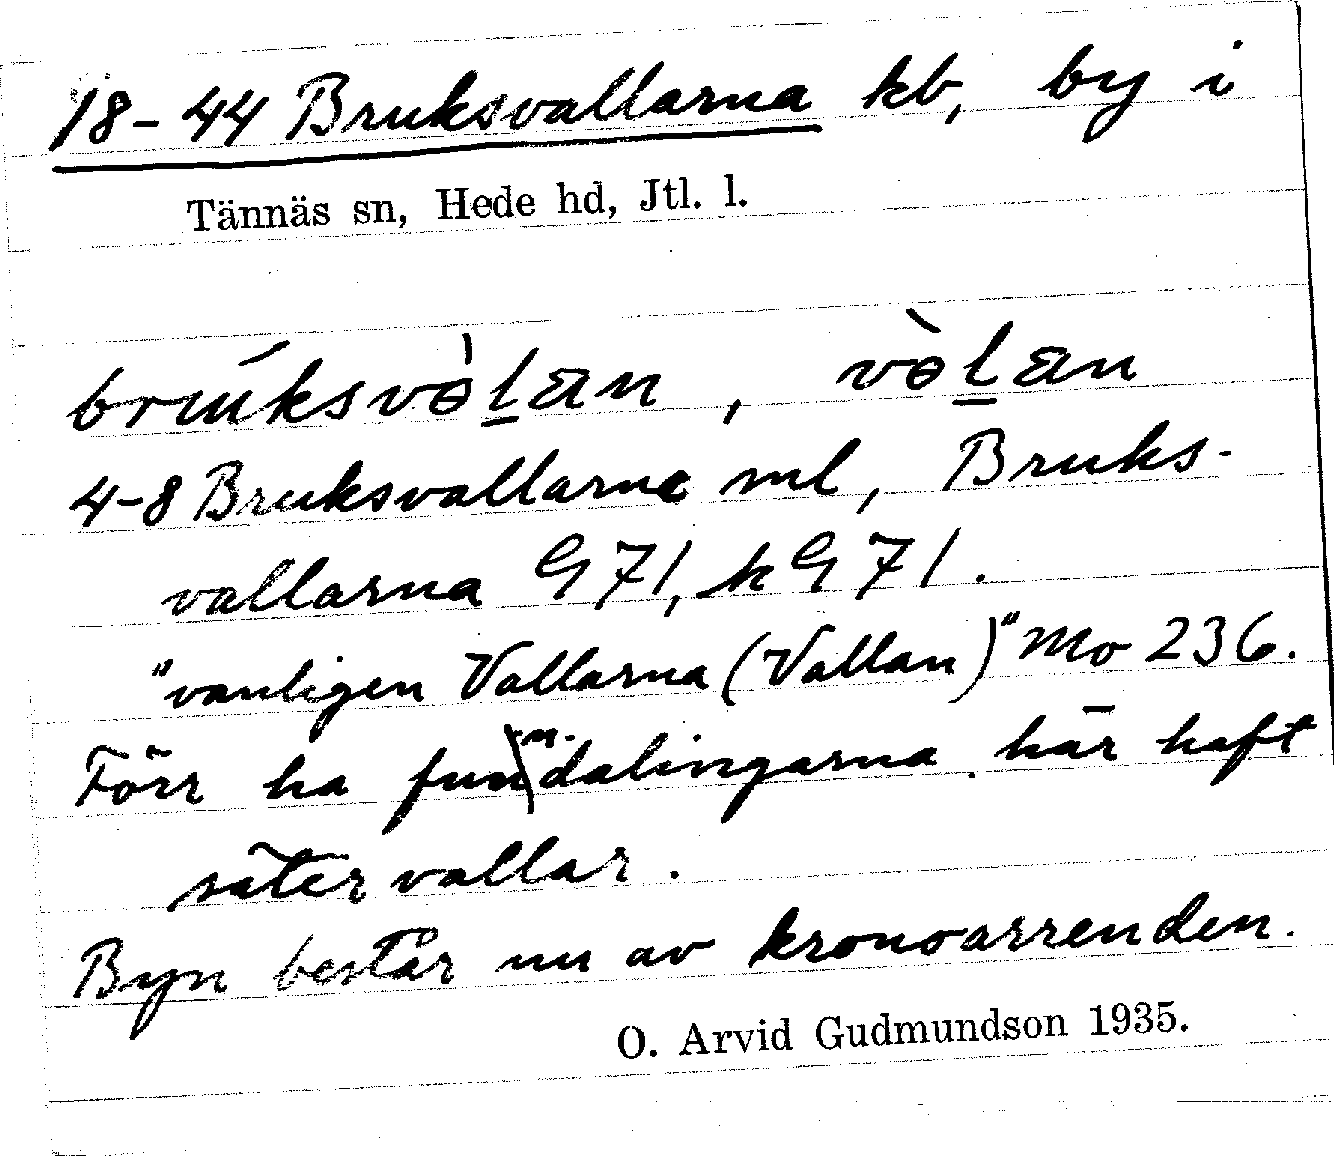 18-44 Bruksvallarna kb, by i
Tännäs sn, Hede hd, Jtl. l.
brúksvə̀lan, və̀lan
4-8 Bruksvallarne ml, Bruks-
vallarna G 71, kG 71.
"vanligen Vallarna (Vallan)" Mo 236.
Förr ha fundalingarna här haft
sätervallar.
Byn består nu av kronoarrenden.
O. Arvid Gudmundson 1935.